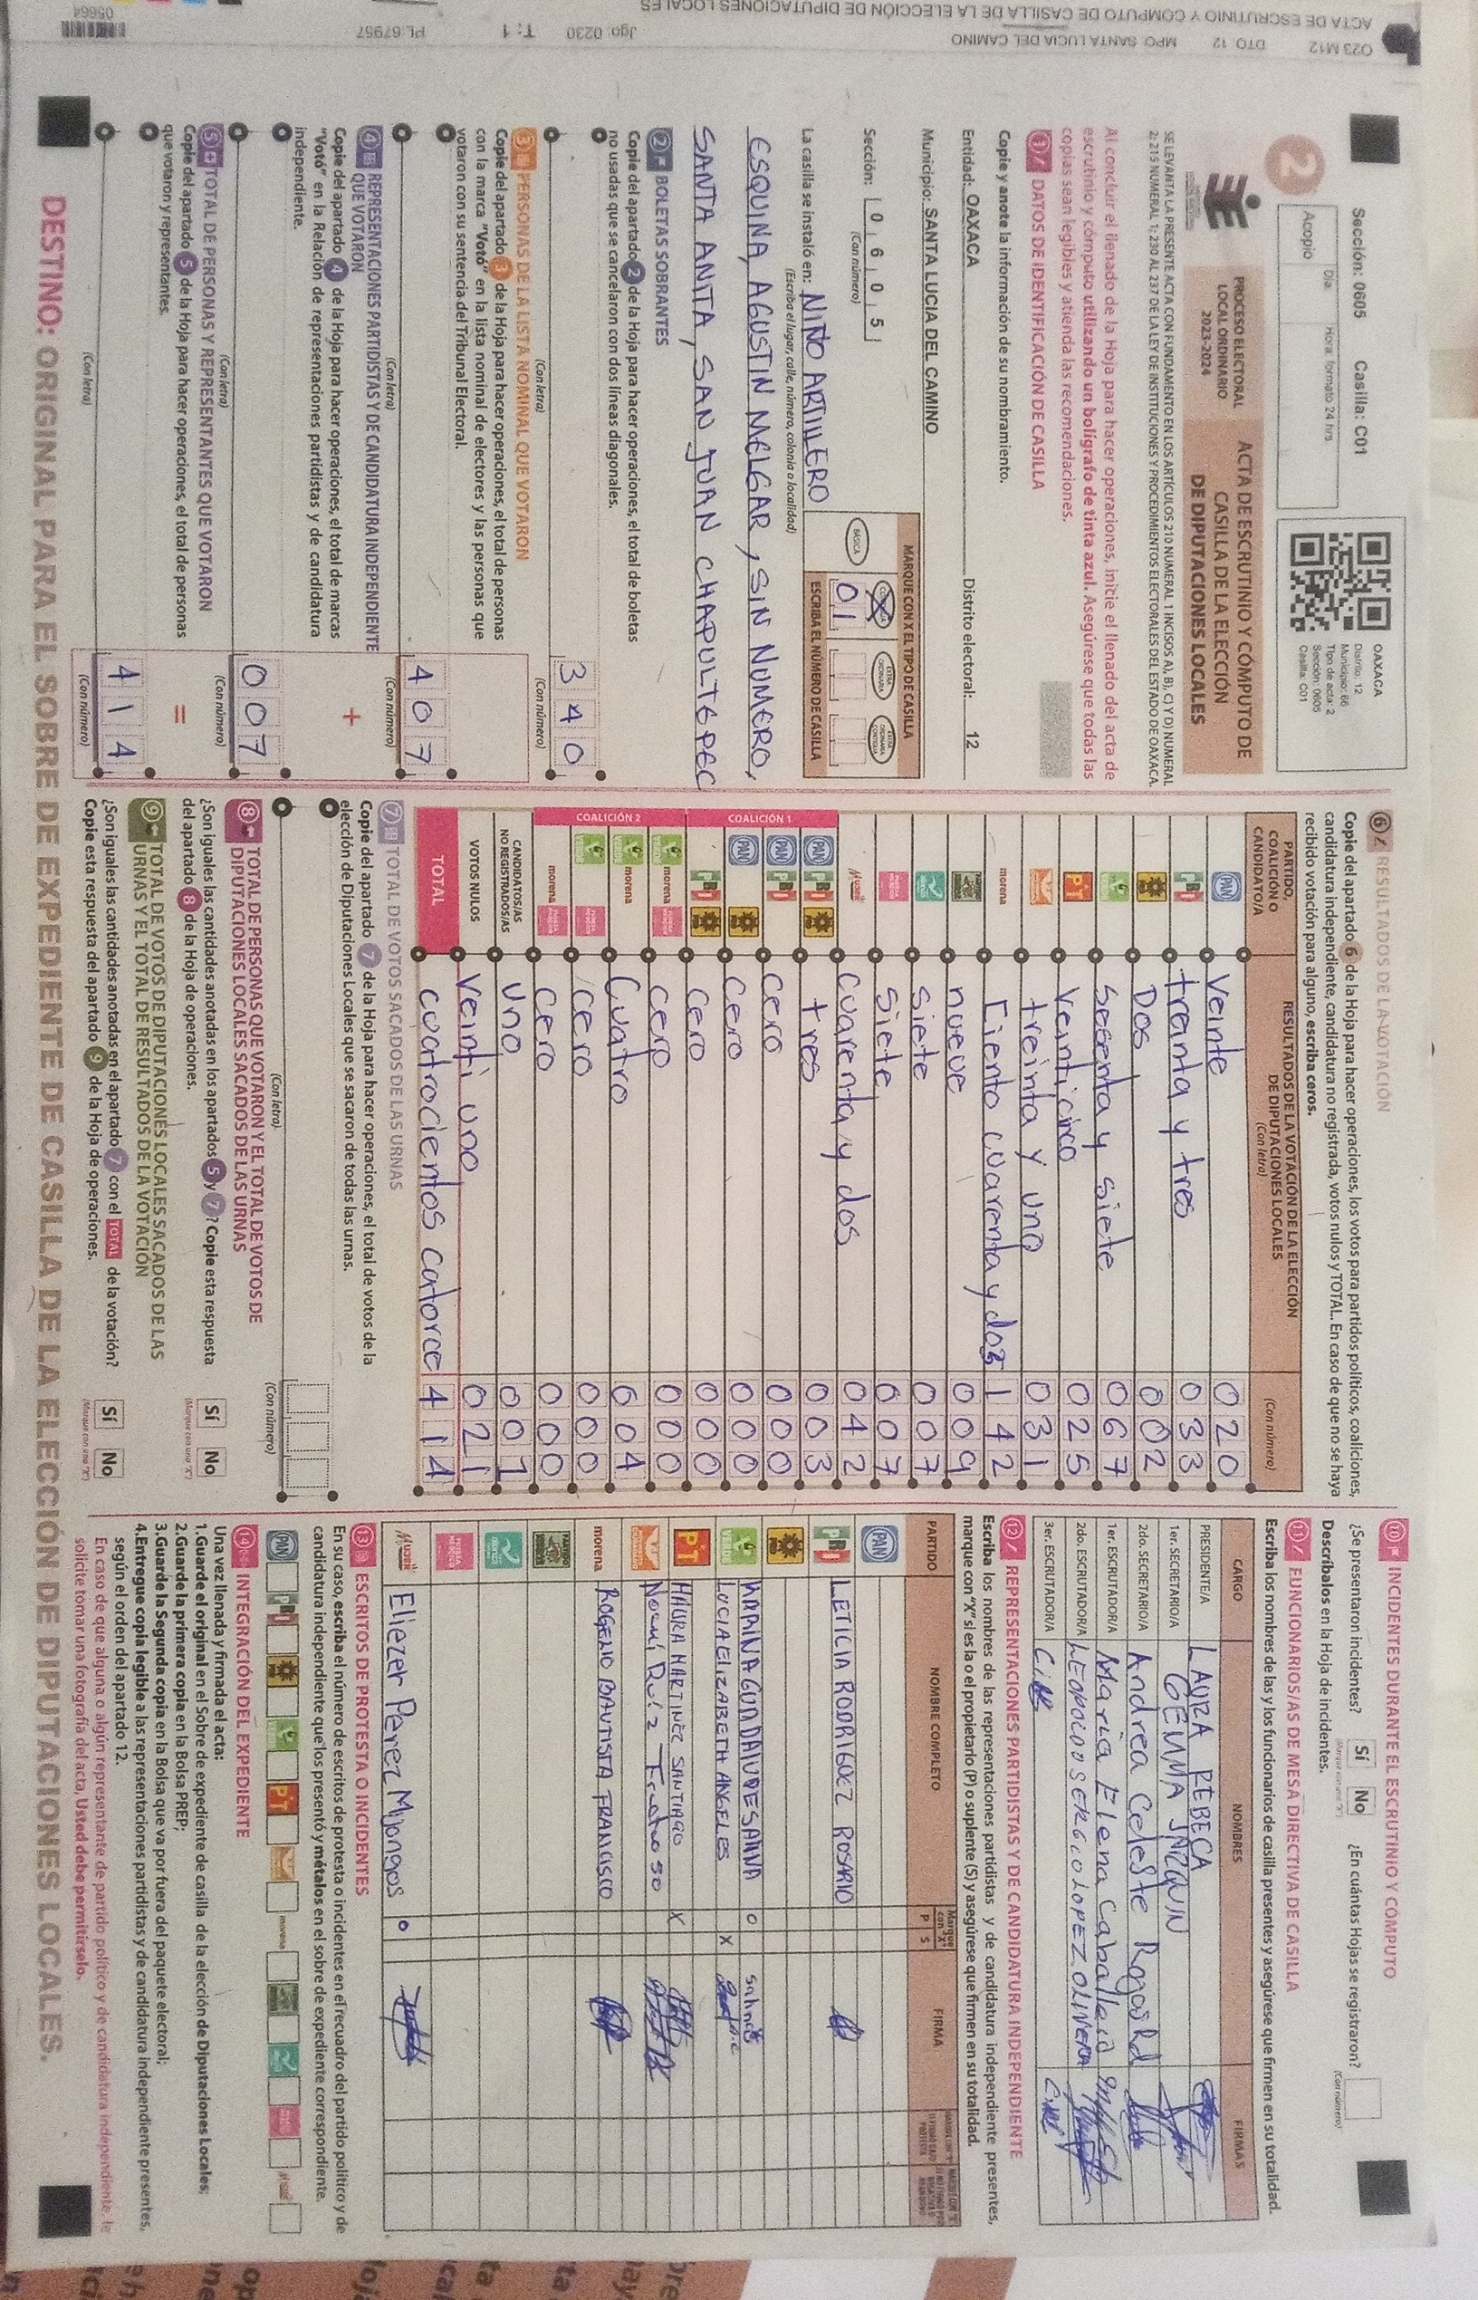 Sección: 0605 Casilla: C01
Día
Hora: formato 24 hrs.
Acopio
OAXACA
Distrito: 12
Municipio: 66
Tipo de acta: 2
Sección: 0605
Casilla: C01
2
PROCESO ELECTORAL
LOCAL ORDINARIO
2023-2024
ACTA DE ESCRUTINIO Y CÓMPUTO DE
CASILLA DE LA ELECCIÓN
DE DIPUTACIONES LOCALES
SE LEVANTA LA PRESENTE ACTA CON FUNDAMENTO EN LOS ARTÍCULOS 210 NUMERAL 1 INCISOS A), B), C) Y D) NUMERAL
2; 215 NUMERAL 1; 230 AL 237 DE LA LEY DE INSTITUCIONES Y PROCEDIMIENTOS ELECTORALES DEL ESTADO DE OAXACA.
Al concluir el llenado de la Hoja para hacer operaciones, inicie el llenado del acta de
escrutinio y cómputo utilizando un bolígrafo de tinta azul. Asegúrese que todas las
copias sean legibles y atienda las recomendaciones.
1 DATOS DE IDENTIFICACIÓN DE CASILLA
Copie y anote la información de su nombramiento.
Entidad: OAXACA Distrito electoral: 12
Municipio: SANTA LUCIA DEL CAMINO
Sección: 0 6 0 5
(Con número)
MARQUE CON X EL TIPO DE CASILLA
BÁSICA
ESCRIBA EL NÚMERO DE CASILLA
01
La casilla se instaló en: NIÑO ARTILLERO
(Escriba el lugar, calle, número, colonia o localidad)
ESQUINA, AGUSTIN MELGAR, SIN NUMERO,
SANTA ANITA, SAN JUAN CHAPULTEPEC
2 BOLETAS SOBRANTES
Copie del apartado 2 de la Hoja para hacer operaciones, el total de boletas
no usadas que se cancelaron con dos líneas diagonales.
340
(Con letra) (Con número)
3 PERSONAS DE LA LISTA NOMINAL QUE VOTARON
Copie del apartado 3 de la Hoja para hacer operaciones, el total de personas
con la marca "Votó" en la lista nominal de electores y las personas que
votaron con su sentencia del Tribunal Electoral.
407
(Con letra) (Con número)
4 REPRESENTACIONES PARTIDISTAS Y DE CANDIDATURA INDEPENDIENTE
QUE VOTARON
+
Copie del apartado 4 de la Hoja para hacer operaciones, el total de marcas
"Votó" en la Relación de representaciones partidistas y de candidatura
independiente.
007
(Con letra) (Con número)
5 TOTAL DE PERSONAS Y REPRESENTANTES QUE VOTARON
=
Copie del apartado 5 de la Hoja para hacer operaciones, el total de personas
que votaron y representantes.
414
(Con letra) (Con número)
6 RESULTADOS DE LA VOTACIÓN
Copie del apartado 6 de la Hoja para hacer operaciones, los votos para partidos políticos, coaliciones,
candidatura independiente, candidatura no registrada, votos nulos y TOTAL. En caso de que no se haya
recibido votación para alguno, escriba ceros.
PARTIDO,
COALICIÓN O
CANDIDATO/A
RESULTADOS DE LA VOTACIÓN DE LA ELECCIÓN
DE DIPUTACIONES LOCALES
(Con letra)
(Con número)
PAN Veinte 020
PRI treinta y tres 033
Dos 002
VERDE Sesenta y siete 067
PT Veinticinco 025
treinta y uno 031
morena Ciento cuarenta y dos 142
nueve 009
siete 007
siete 007
MUJER cuarenta y dos 042
COALICIÓN 1
PAN PRI tres 003
PAN PRI cero 000
PAN cero 000
PRI cero 000
COALICIÓN 2
VERDE morena cero 000
VERDE morena Cuatro 004
VERDE cero 000
morena cero 000
CANDIDATOS/AS
NO REGISTRADOS/AS uno 001
VOTOS NULOS Veinti uno 021
TOTAL cuatrocientos catorce 414
7 TOTAL DE VOTOS SACADOS DE LAS URNAS
Copie del apartado 7 de la Hoja para hacer operaciones, el total de votos de la
elección de Diputaciones Locales que se sacaron de todas las urnas.
(Con letra) (Con número)
8 TOTAL DE PERSONAS QUE VOTARON Y EL TOTAL DE VOTOS DE
DIPUTACIONES LOCALES SACADOS DE LAS URNAS
¿Son iguales las cantidades anotadas en los apartados 5 y 7? Copie esta respuesta
del apartado 8 de la Hoja de operaciones.
Sí No
9 TOTAL DE VOTOS DE DIPUTACIONES LOCALES SACADOS DE LAS
URNAS Y EL TOTAL DE RESULTADOS DE LA VOTACIÓN
¿Son iguales las cantidades anotadas en el apartado 7 con el TOTAL de la votación?
Copie esta respuesta del apartado 9 de la Hoja de operaciones.
Sí No
10 INCIDENTES DURANTE EL ESCRUTINIO Y CÓMPUTO
¿Se presentaron incidentes? Sí No ¿En cuántas Hojas se registraron?
(Con número)
Descríbalos en la Hoja de incidentes.
11 FUNCIONARIOS/AS DE MESA DIRECTIVA DE CASILLA
Escriba los nombres de las y los funcionarios de casilla presentes y asegúrese que firmen en su totalidad.
CARGO NOMBRES FIRMAS
PRESIDENTE/A LAURA REBECA
1er. SECRETARIO/A GEMMA
2do. SECRETARIO/A Andrea Celeste
1er. ESCRUTADOR/A Maria Elena Caballero
2do. ESCRUTADOR/A LEOPOLDO SERGIO LOPEZ OLIVERA
3er. ESCRUTADOR/A
12 REPRESENTACIONES PARTIDISTAS Y DE CANDIDATURA INDEPENDIENTE
Escriba los nombres de las representaciones partidistas y de candidatura independiente presentes,
marque con "X" si es la o el propietario (P) o suplente (S) y asegúrese que firmen en su totalidad.
PARTIDO NOMBRE COMPLETO Marque con "X" P S FIRMA
PAN
PRI LETICIA RODRIGUEZ ROSARIO
VERDE LUCIA ELIZABETH ANGELES X
PT MARTINEZ SANTIAGO X
Noemí Ruiz
morena ROGELIO BAUTISTA FRANCISCO
MUJER Eliezer Perez Mijangos
13 ESCRITOS DE PROTESTA O INCIDENTES
En su caso, escriba el número de escritos de protesta o incidentes en el recuadro del partido político y de
candidatura independiente que los presentó y métalos en el sobre de expediente correspondiente.
PAN PRI VERDE PT morena MUJER
14 INTEGRACIÓN DEL EXPEDIENTE
Una vez llenada y firmada el acta:
1.Guarde el original en el Sobre de expediente de casilla de la elección de Diputaciones Locales;
2.Guarde la primera copia en la Bolsa PREP;
3.Guarde la Segunda copia en la Bolsa que va por fuera del paquete electoral;
4.Entregue copia legible a las representaciones partidistas y de candidatura independiente presentes,
según el orden del apartado 12.
En caso de que alguna o algún representante de partido político y de candidatura independiente, le
solicite tomar una fotografía del acta, Usted debe permitírselo.
DESTINO: ORIGINAL PARA EL SOBRE DE EXPEDIENTE DE CASILLA DE LA ELECCIÓN DE DIPUTACIONES LOCALES.
O23 M12 DTO: 12 MPO: SANTA LUCIA DEL CAMINO
ACTA DE ESCRUTINIO Y COMPUTO DE CASILLA DE LA ELECCIÓN DE DIPUTACIONES LOCALES
Jgo: 0230 T: 1 PL:67957
05664